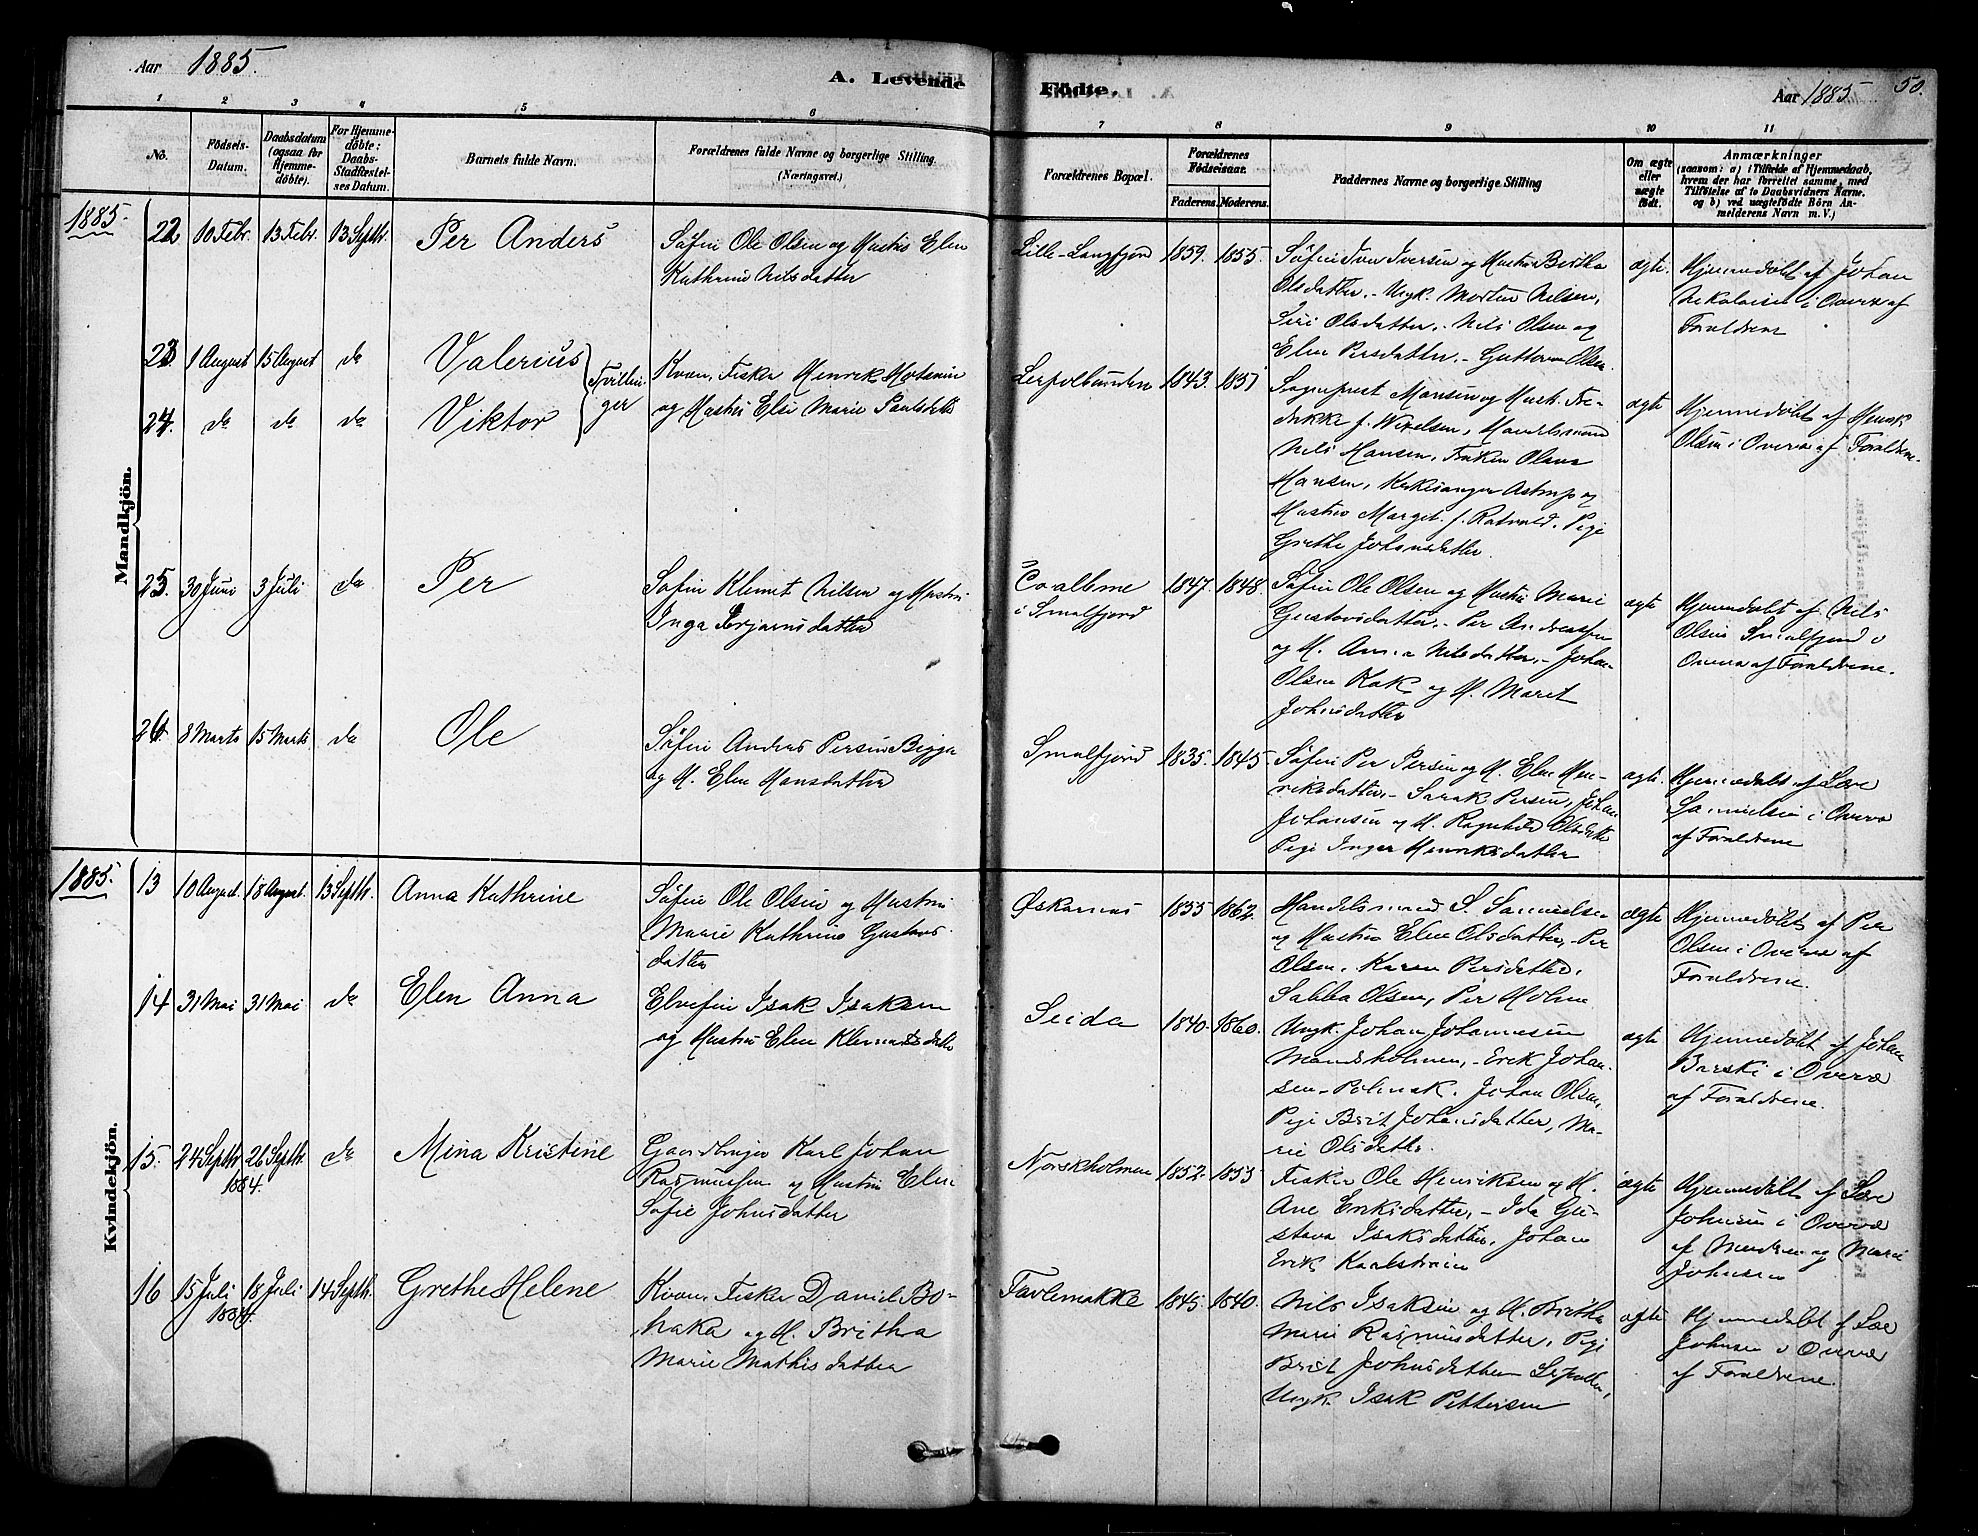 Aar 1885.
A. Levende Födte.
Aar 1885 50.
1 2 3 4 5 6 7 8 9 10 11
No.
Födsels-Datum.
Daabsdatum (ogsaa for Hjemme-döbte).
For Hjemme-döbte: Daabs-Stadfæstel-ses Datum.
Barnets fulde Navn.
Forældrenes fulde Navne og borgerlige Stilling.
(Næringsvei.)
Forældrenes Bopæl.
Forældrenes Födselsaar.
Faderens. Moderens.
Faddernes Navne og borgerlige Stilling
Om ægte eller uægte födt.
Anmærkninger
(saasom: a) i Tilfælde af Hjemmedaab,
hvem der har forrettet samme, med
Tilföielse af to Daabsvidners Navne.
og b) ved uægtefödte Börn An-
melderens Navn m. V.)
1885.
Mandkjön.
22 10 Febr. 13 Febr. 13 Septbr. Per Anders
Söfin Ole Olsen og Hustru Elen
Kathrine Nilsdatter
Lille-Langfjord 1859. 1855.
Söfin Iver Iversen og Hustru Berthe
Olsdatter. - Ungk. Morten Nilsen,
Siri Olsdatter. - Nils Olsen og
Elen Persdatter. - Guttorm Olsen
ægte.
Hjemmedöbt af Johan
Nikolaisen i Overv. af
Forældrene
23 1 August 15 August do Valerius
24. do do do Viktor
Tvillin-
ger
Kvæn, Fisker Henrik
og Hustru Elsa Marie
1843. 1851
Monsen og Hustr. Fre-
drikke f. Wexelsen, Handelsmand
Nils Hansen, Frøken Olava
Hansen, Kirkesanger Astrup og
Hustru Margit f. Pige
Grethe Johansdatter.
ægte
Hjemmedöbt af Henrik
Olsen i Overv. af Forældrene.
25. 30 Juni 3 Juli do Per
Söfin Klemet Nilsen og Hustru
Inga
i Smalfjord 1847. 1848.
Söfin Ole Olsen og Hustru Marie
Gustavsdatter. - Per Andreassen
og H. Anna Nilsdatter. - Johan
Olsen Kok og H. Maret
Johnsdatter
ægte
Hjemmedöbt af Nils
Olsen Smalfjord i
Overv. af Forældrene.
26 8 Marts 15 Marts do Ole
Söfin Anders Persen Bigga
og H. Elen Hansdatter
Smalfjord 1835. 1845.
Söfin Per Persen og H. Elen Hen-
riksdatter. - Sarak Persen, Johan
Johansen og H. Ragnhild Olsdatter
Pige Inger Henriksdatter
ægte.
Hjemmedöbt af Lare
Samuelsen i Overv.
af Forældrene
1885.
Kvindekjön.
13 10 August. 18 August. 13 Septbr. Anna Kathrine
Söfin Ole Olsen og Hustru
Marie Kathrine Gustavs
datter
1855 1862.
Handelsmand S. Samuelsen
og Hustru Elen Olsdatter, Per
Olsen, Karen Persdatter,
Sabba Olsen, Per Holm
ægte
Hjemmedöbt af Per
Olsen i Overv. af
Forældrene.
14 31 Mai 31 Mai do Elen Anna
Elvefin Isak Isaksen
og Hustru Elen Klemetsdatter
Seida 1840. 1860.
Ungk. Johan Johannesen
Mandsholmen, - Erik Johan-
sen - Polmak. Johan Olsen,
Pige Brit Johansdatter, Ma-
rie Olsdatter.
ægte
Hjemmedöbt af Johan
Barski i Overv.
af Forældrene.
15. 24 Septbr. 1884. 26 Septbr. do Mina Kristine
Gaardbruger Karl Johan
Rasmussen og Hustru Elen
Sofie Johnsdatter
Norskholmen 1852. 1855
Fisker Ole Henriksen og H.
Ane Eriksdatter, - Ida Gu-
stava Isaksdatter, Johan
Erik Karlstrøm
ægte
Hjemmedöbt af Lare
Johnsen i Overv.
af Moderen og Marie
Johnsen
16 15 Juli 1884. 18 Juli 14 Septbr. Grethe Helene
Kvæn, Fisker Daniel Bo-
haka og H. Britha
Marie Mathisdatter
1845. 1840.
Nils Isaksen og H. Britha
Marie Rasmusdatter, Pige
Brit Johnsdatter
Ungk. Isak Pettersen
ægte
Hjemmedöbt af Lare
Johnsen i Overv.
af Forældrene.